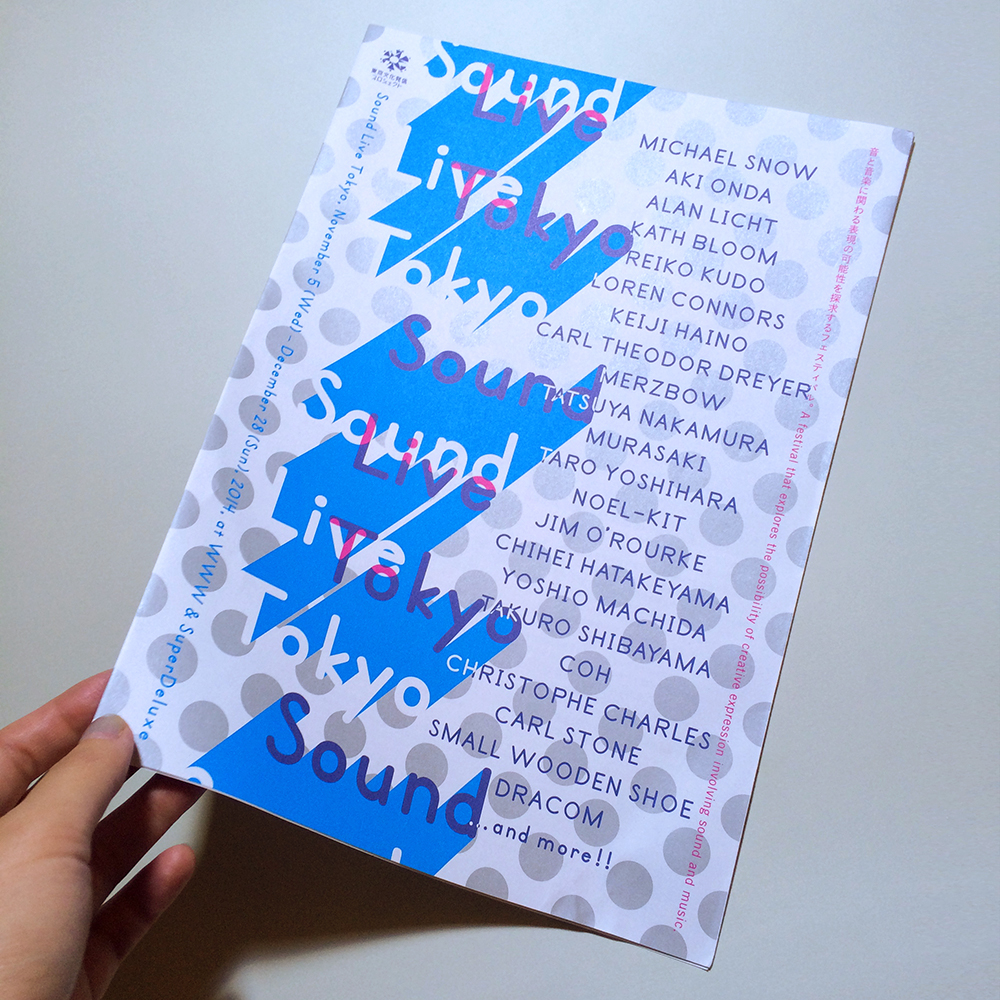 東京文化発信
プロジェクト
Sound Live Tokyo. November 5 (Wed) – December 28 (Sun), 2014. at WWW & SuperDeluxe
Sound
Live
Live
Tokyo
Tokyo
Sound
Sound
Live
Live
Tokyo
Tokyo
Sound
MICHAEL SNOW
AKI ONDA
ALAN LICHT
KATH BLOOM
REIKO KUDO
LOREN CONNORS
KEIJI HAINO
CARL THEODOR DREYER
MERZBOW
TATSUYA NAKAMURA
MURASAKI
TARO YOSHIHARA
NOEL-KIT
JIM O'ROURKE
CHIHEI HATAKEYAMA
YOSHIO MACHIDA
TAKURO SHIBAYAMA
COH
CHRISTOPHE CHARLES
CARL STONE
SMALL WOODEN SHOE
DRACOM
...and more!!
音と音楽に関わる表現の可能性を探求するフェスティバル。 A festival that explores the possibility of creative expression involving sound and music.